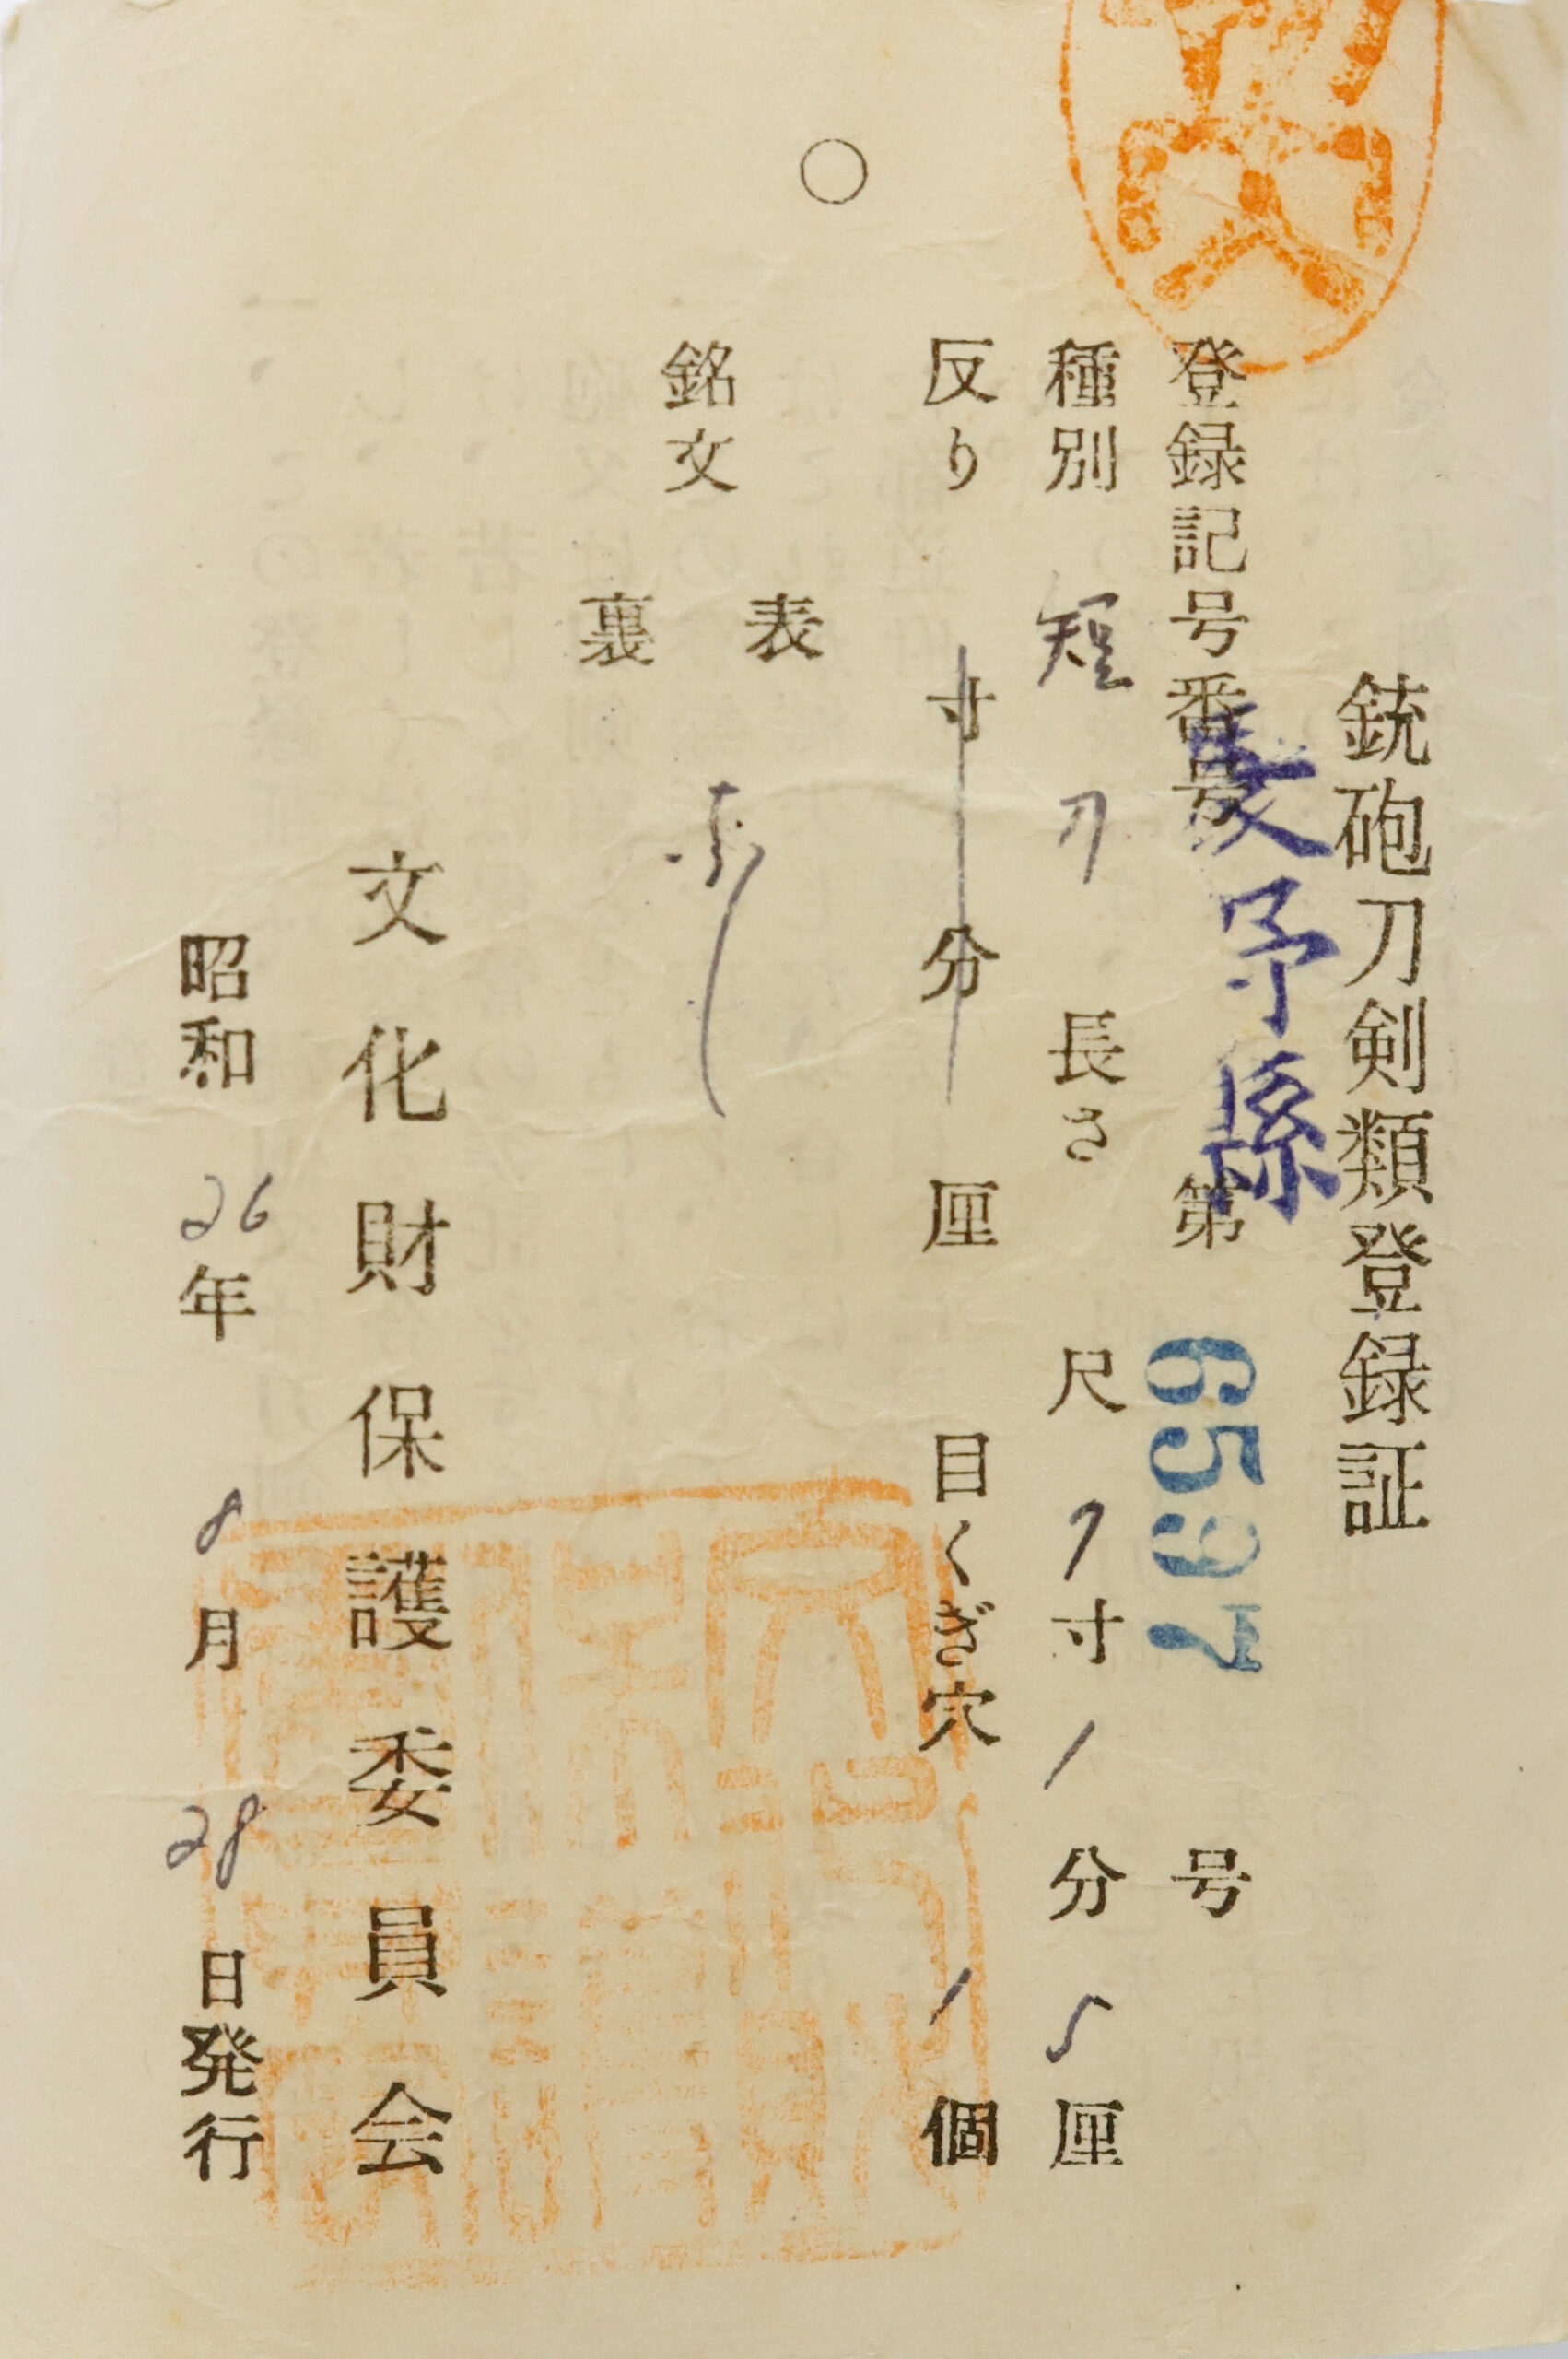 銃砲刀剣類登録証
登録記号番号 長野縣 第 6597 号
種別 短刀 長さ 尺 7寸 1分 5厘
反り 寸 分 厘 目くぎ穴 1個
銘文 表 裏 なし
文化財保護委員会
昭和 26年 8月 28日発行